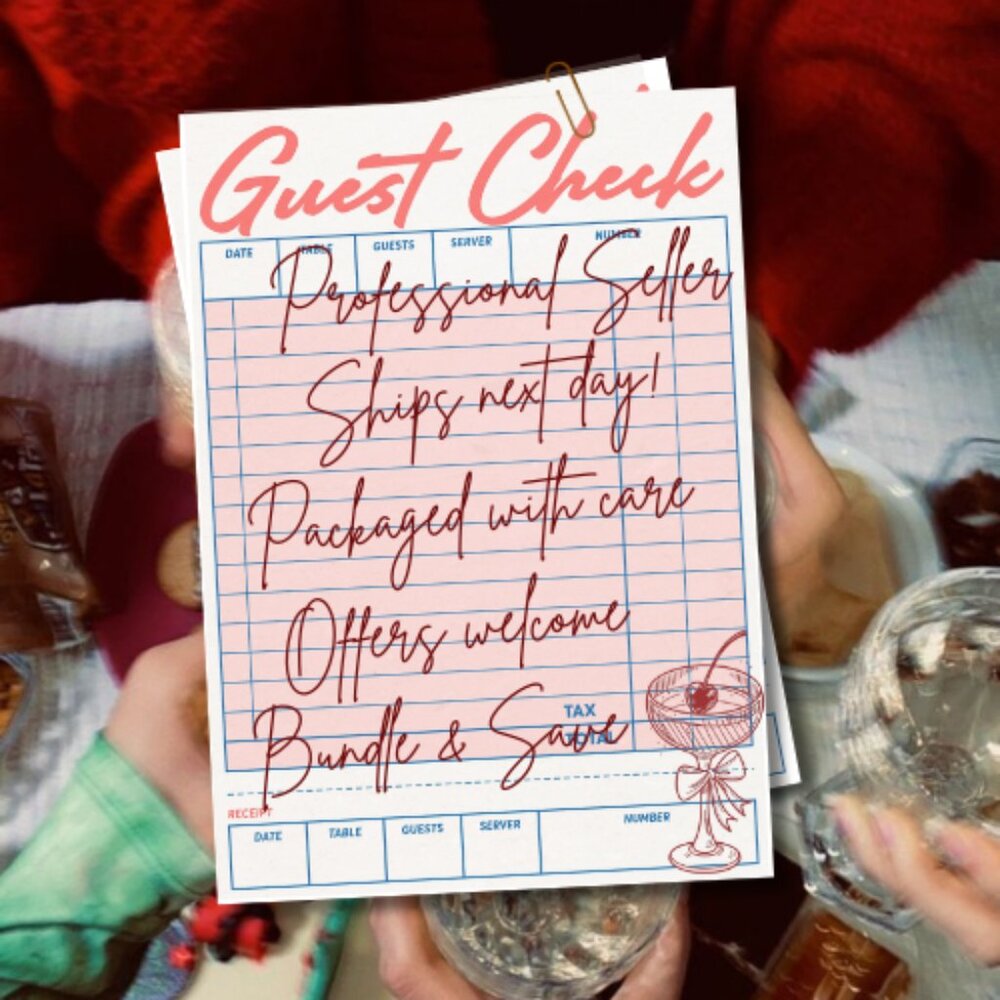 Guest Check
DATE TABLE GUESTS SERVER NUMBER
Professional Seller
Ships next day!
Packaged with care
Offers welcome
TAX
Bundle & Save
TOTAL
RECEIPT
DATE TABLE GUESTS SERVER NUMBER